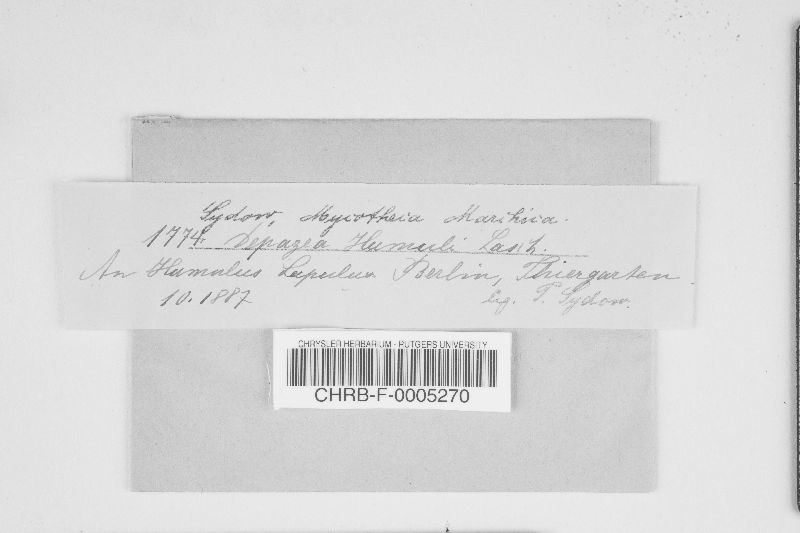 Sydow, Mycotheca Marchica.
1774. Depazea Humuli Lasch.
An Humulus Lupulus Berlin, Thiergarten
10. 1887 lig. P. Sydow.
CHRYSLER HERBARIUM - RUTGERS UNIVERSITY
CHRB-F-0005270